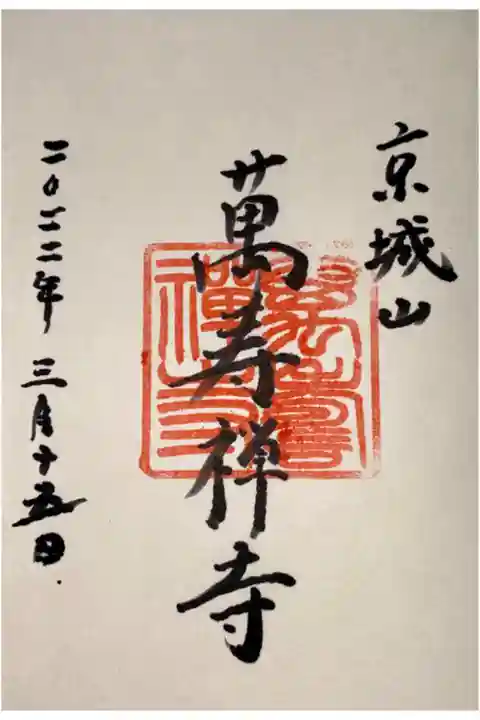 京城山
萬寿禅寺
二〇二二年 三月十五日